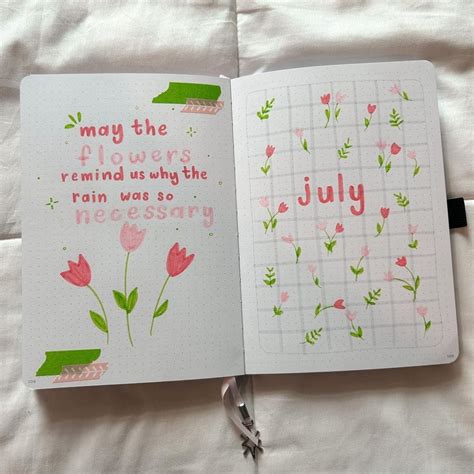 may the
flowers
remind us why the
rain was so
necessary
july